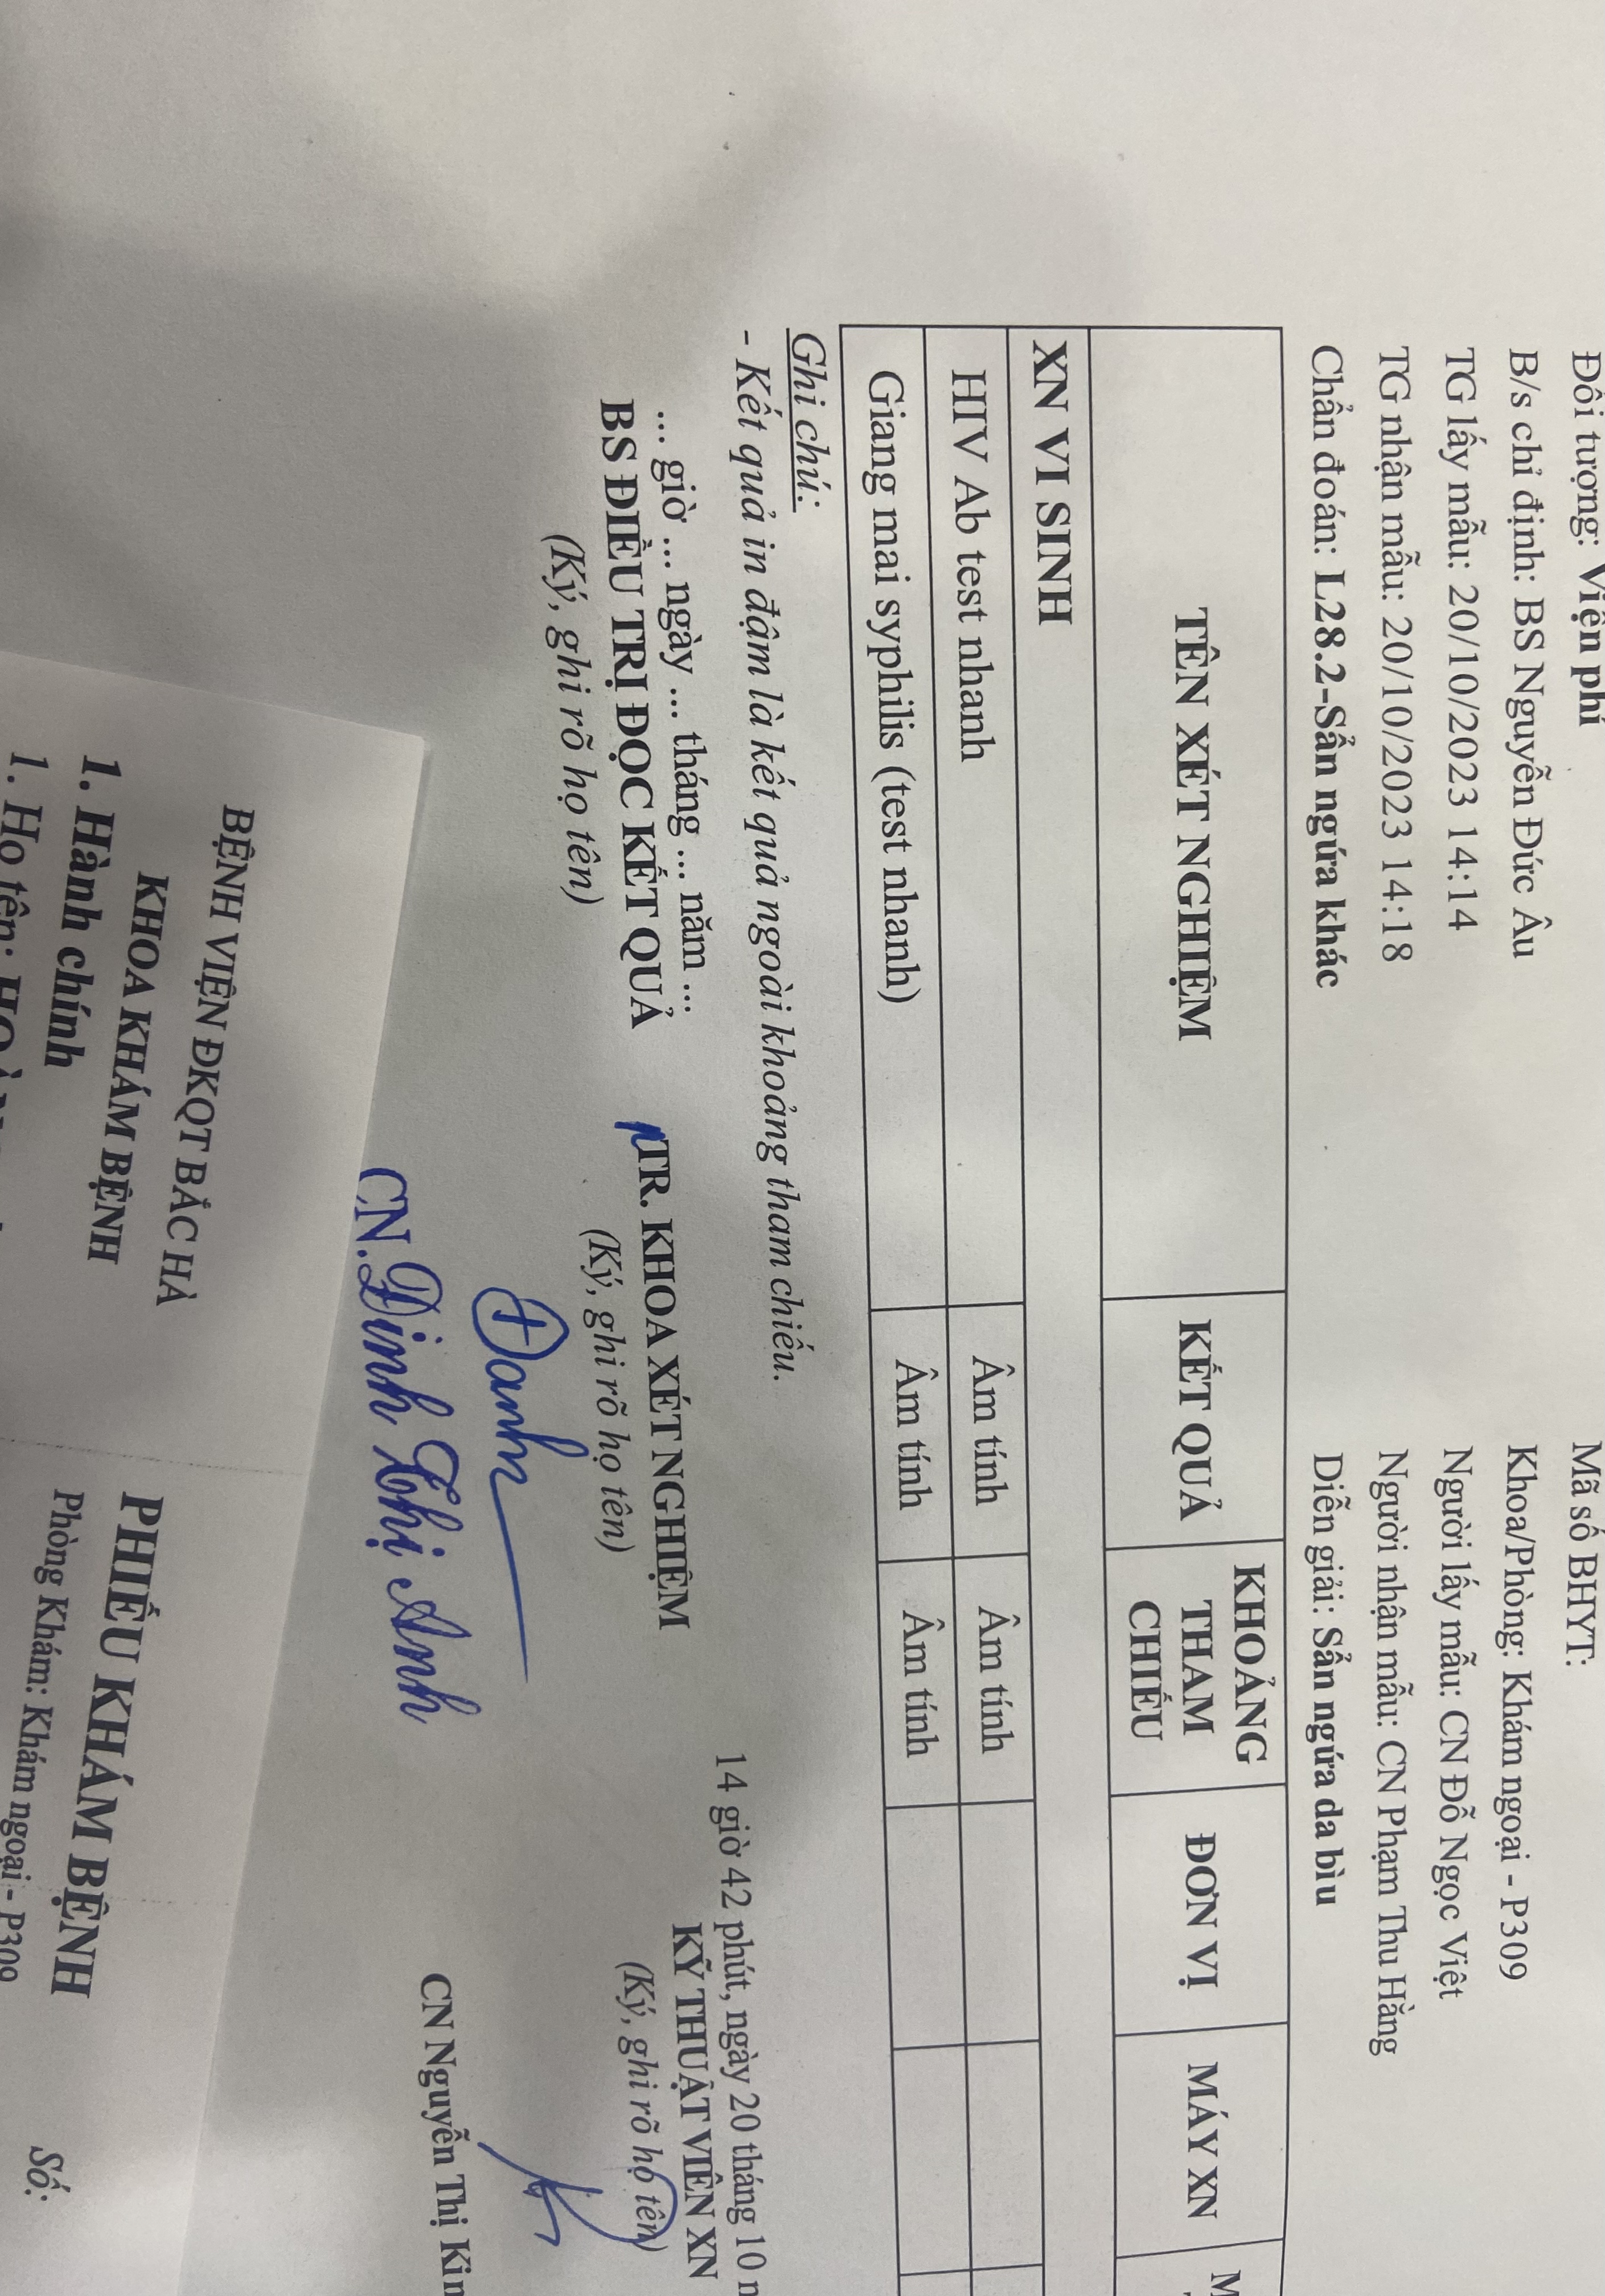 Đối tượng: Viện phí
Mã số BHYT:
B/s chỉ định: BS Nguyễn Đức Âu
Khoa/Phòng: Khám ngoại - P309
TG lấy mẫu: 20/10/2023 14:14
Người lấy mẫu: CN Đỗ Ngọc Việt
TG nhận mẫu: 20/10/2023 14:18
Người nhận mẫu: CN Phạm Thu Hằng
Chẩn đoán: L28.2-Sẩn ngứa khác
Diễn giải: Sẩn ngứa da bìu
TÊN XÉT NGHIỆM
KẾT QUẢ
KHOẢNG
THAM
CHIẾU
ĐƠN VỊ
MÁY XN
XN VI SINH
HIV Ab test nhanh
Âm tính
Âm tính
Giang mai syphilis (test nhanh)
Âm tính
Âm tính
Ghi chú:
- Kết quả in đậm là kết quả ngoài khoảng tham chiếu.
14 giờ 42 phút, ngày 20 tháng 10
... giờ ... ngày ... tháng ... năm ...
BS ĐIỀU TRỊ ĐỌC KẾT QUẢ
TR. KHOA XÉT NGHIỆM
KỸ THUẬT VIÊN XN
(Ký, ghi rõ họ tên)
(Ký, ghi rõ họ tên)
(Ký, ghi rõ họ tên)
Đanh
CN. Đinh Thị Anh
CN Nguyễn Thị
BỆNH VIỆN ĐKQT BẮC HÀ
KHOA KHÁM BỆNH
PHIẾU KHÁM BỆNH
1. Hành chính
Phòng Khám: Khám ngoại - P309
Số:
1. Họ tên: